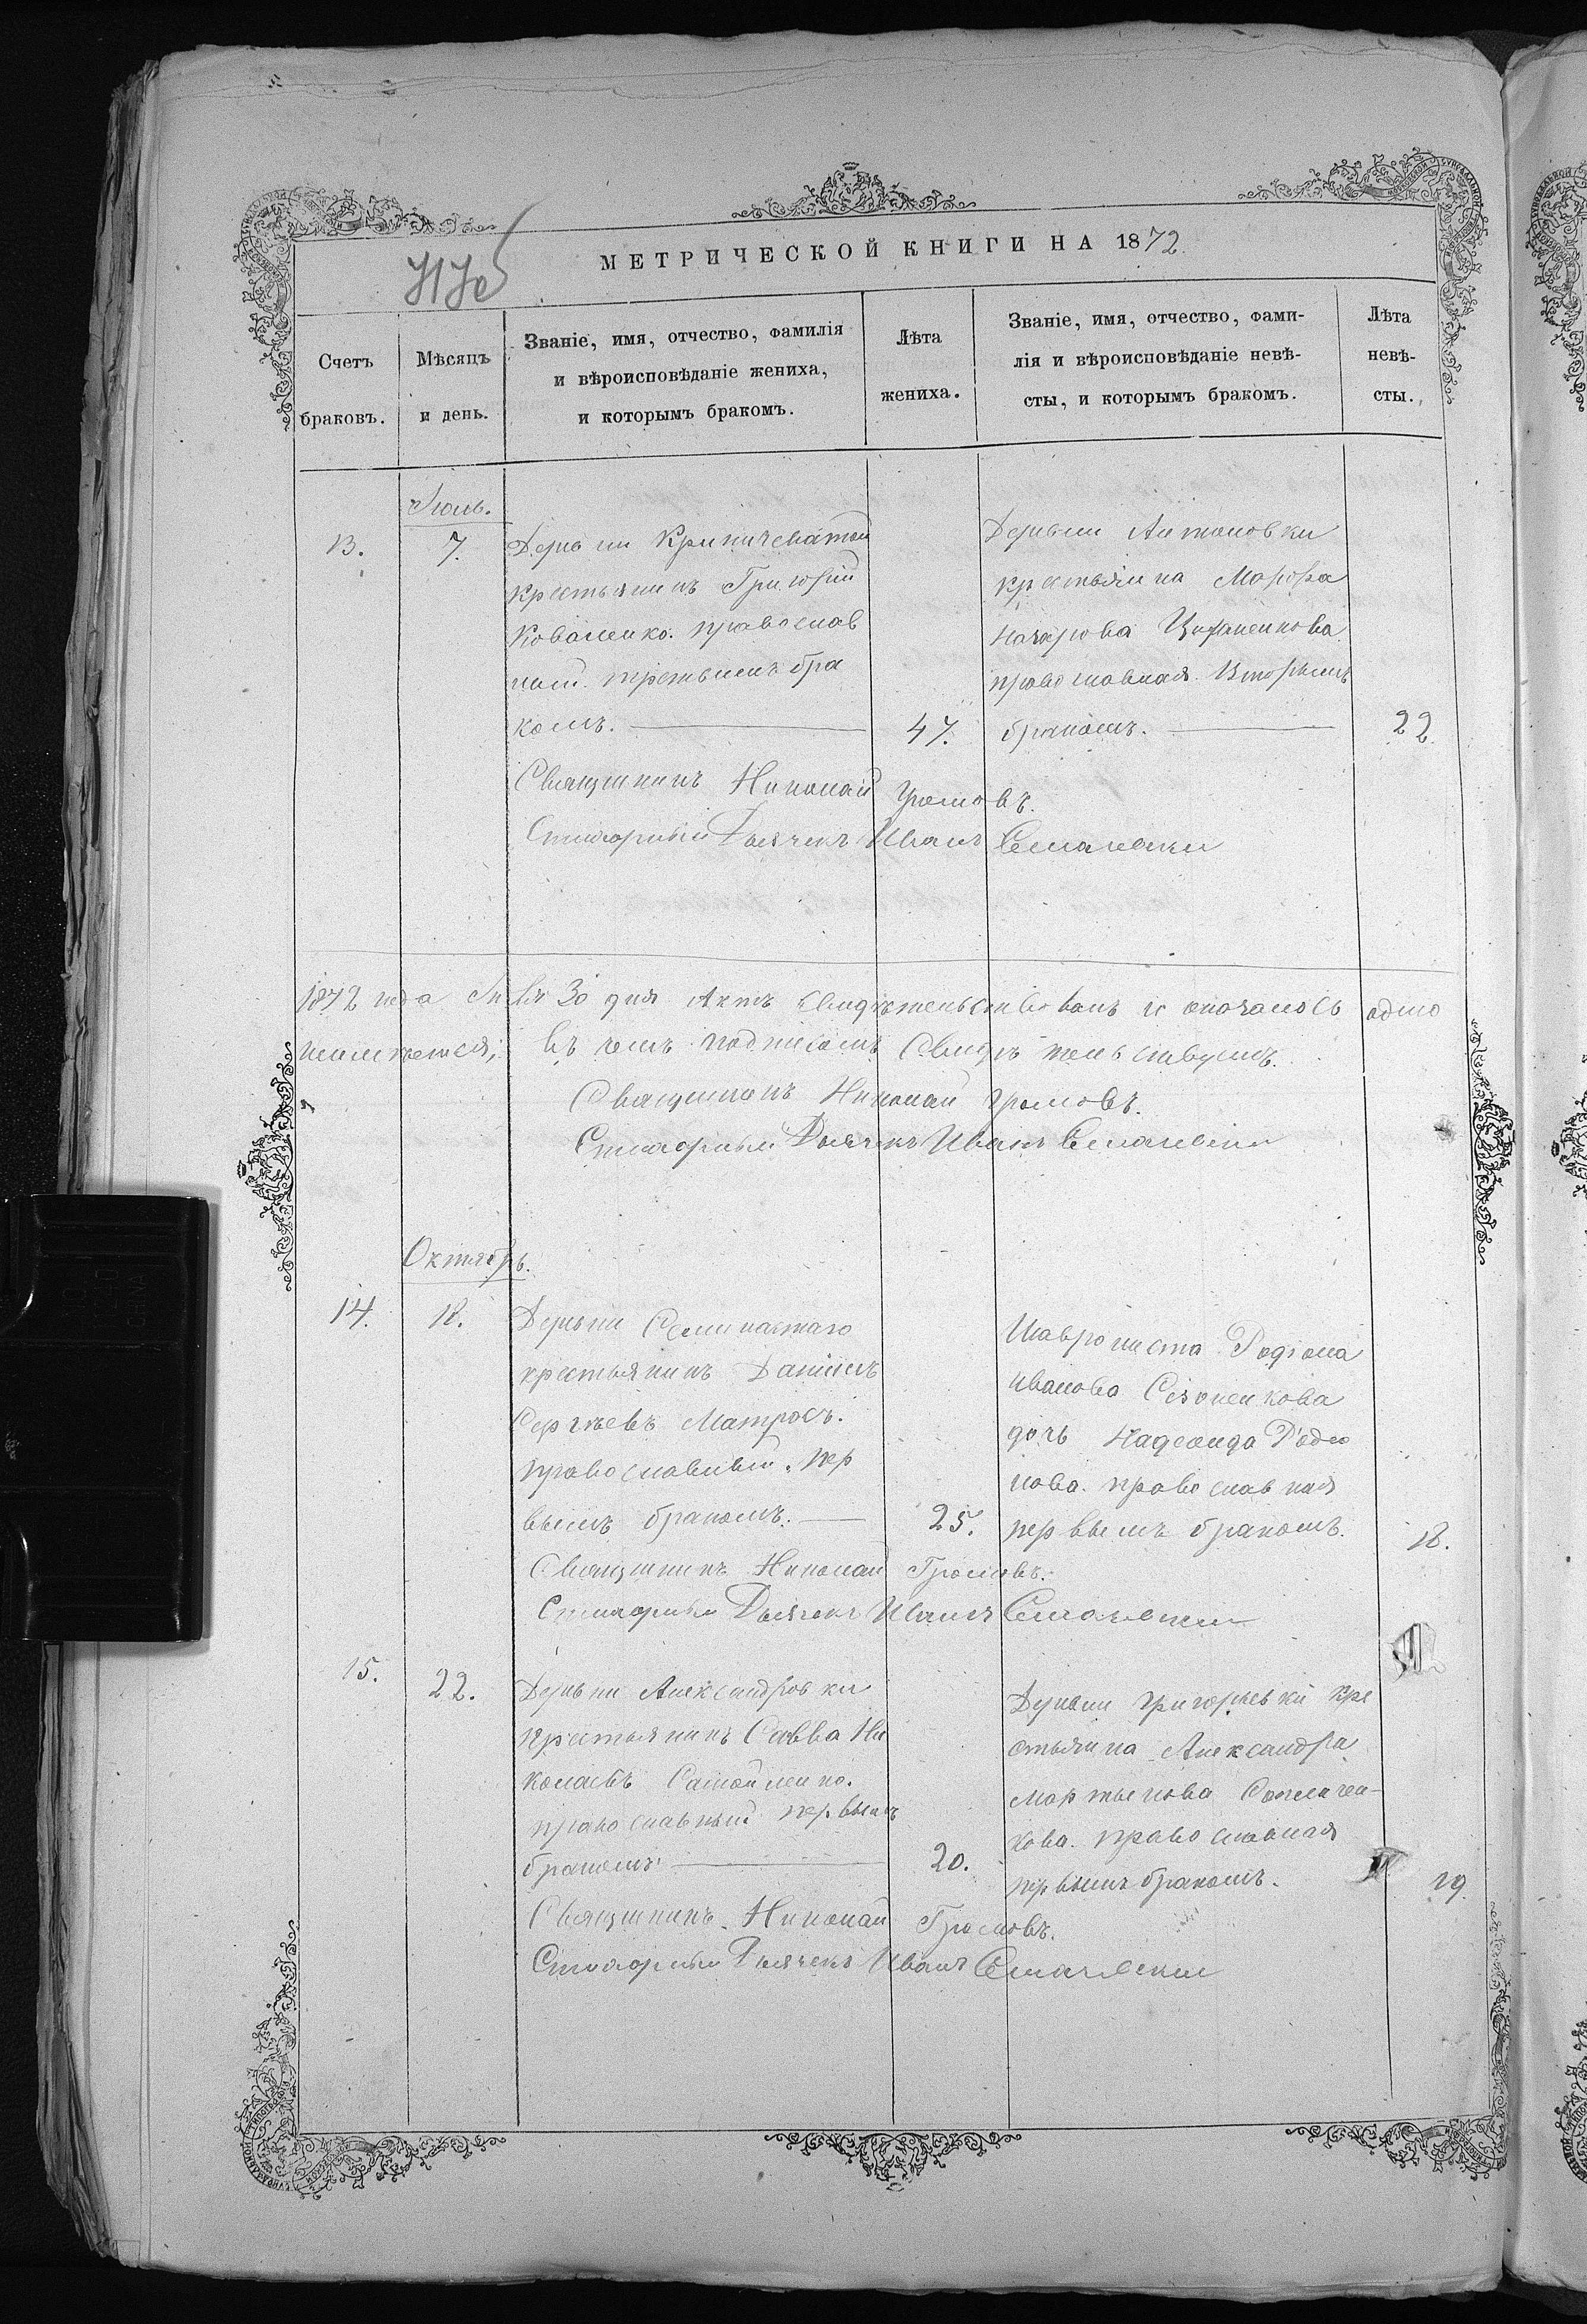 МЕТРИЧЕСКОЙ КНИГИ НА 1872
Счетъ браковъ.
Мѣсяцъ и день.
Званіе, имя, отчество, фамилія
и вѣроисповѣданіе жениха,
и которымъ бракомъ.
Лѣта
жениха.
Званіе, имя, отчество, фами-
лія и вѣроисповѣданіе невѣ-
сты, и которымъ бракомъ.
Лѣта
невѣ-
сты.
Іюль.
13.
7.
Деревни Криничеватой
крестьянинъ Григорій
Коваленко. православ
ный. третьимъ бра
комъ.
47.
Деревни Антоновки
крестьянка Марфа
Назарова
православная. Вторымъ
бракомъ.
22
Священникъ Николай Громовъ.
Дьячекъ Иванъ
1872 года 30 дня Актъ свидѣтельствованъ и оказалось
въ чемъ подписомъ свидѣтельствуемъ.
Священникъ Николай Громовъ.
Дьячекъ Иванъ
Октябрь.
14.
18.
Деревни
крестьянинъ Даніилъ
Сергѣевъ Матросъ.
православный. пер
вымъ бракомъ.
25.
Родіона
Иванова
дочь Надежда Родіо
нова. православная
первымъ бракомъ.
18.
Священникъ Николай Громовъ.
Дьячекъ Иванъ
15.
22.
Деревни Александровки
крестьянинъ Савва Ни
колаевъ Самойленко.
православный первымъ
бракомъ
20.
Деревни Григорьевки кре
стьянка Александра
Мартынова
кова. православная
первымъ бракомъ.
19.
Священникъ Николай Громовъ.
Дьячекъ Иванъ